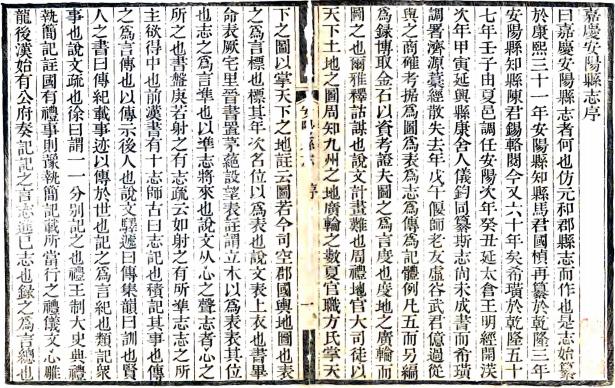 嘉慶安陽縣志序
曰嘉慶安陽縣志者何也仿元和郡縣志而作也是志始纂
於康熙三十一年安陽縣知縣馬君國楨再纂於乾隆三年
安陽縣知縣陳君錫輅閱今又六十年矣希璜於乾隆五十
七年壬子由夏邑調任安陽次年癸丑延太倉王明經開沃
次年甲寅延興縣康舍人儀鈞同纂斯志尚未成書而希璜
調署濟源藁經散失去年戊午偃師老友虛谷武君億過從
與之商確考據爲圖爲表爲志爲傳爲記體例凡五而另編
爲錄博取金石以資考證夫圖之為言度也度地之廣輪而
圖之也爾雅釋詁謀也說文計畫難也周禮地官大司徒以
天下土地之圖周知九州之地廣輪之數夏官職方氏掌天
序
一
下之圖以掌天下之地註云圖若今司空郡國輿地圖也表
之為言標也標其年次名位以爲表也說文表上衣也書畢
命表厥宅里晉書置茅蕝設望表註謂立木以爲表表其位
也志之為言準也以準志將來也說文从心之聲志者心之
所之也書盤庚若射之有志疏云如射之有所準志志之所
主欲得中也前漢書有十志師古曰志記也積記其事也傳
之為言傳也以傳示後人也說文驛遞曰傳集韻曰訓也賢
人之書曰傳紀載事迹以傳於世也記之為言紀也類記衆
事也說文疏也徐曰謂一一分別記之也禮王制大史典禮
執簡記註國有禮事則豫執簡記載所當行之禮儀文心雕
龍後漢始有公府奏記記之言志進已志也錄之為言總也